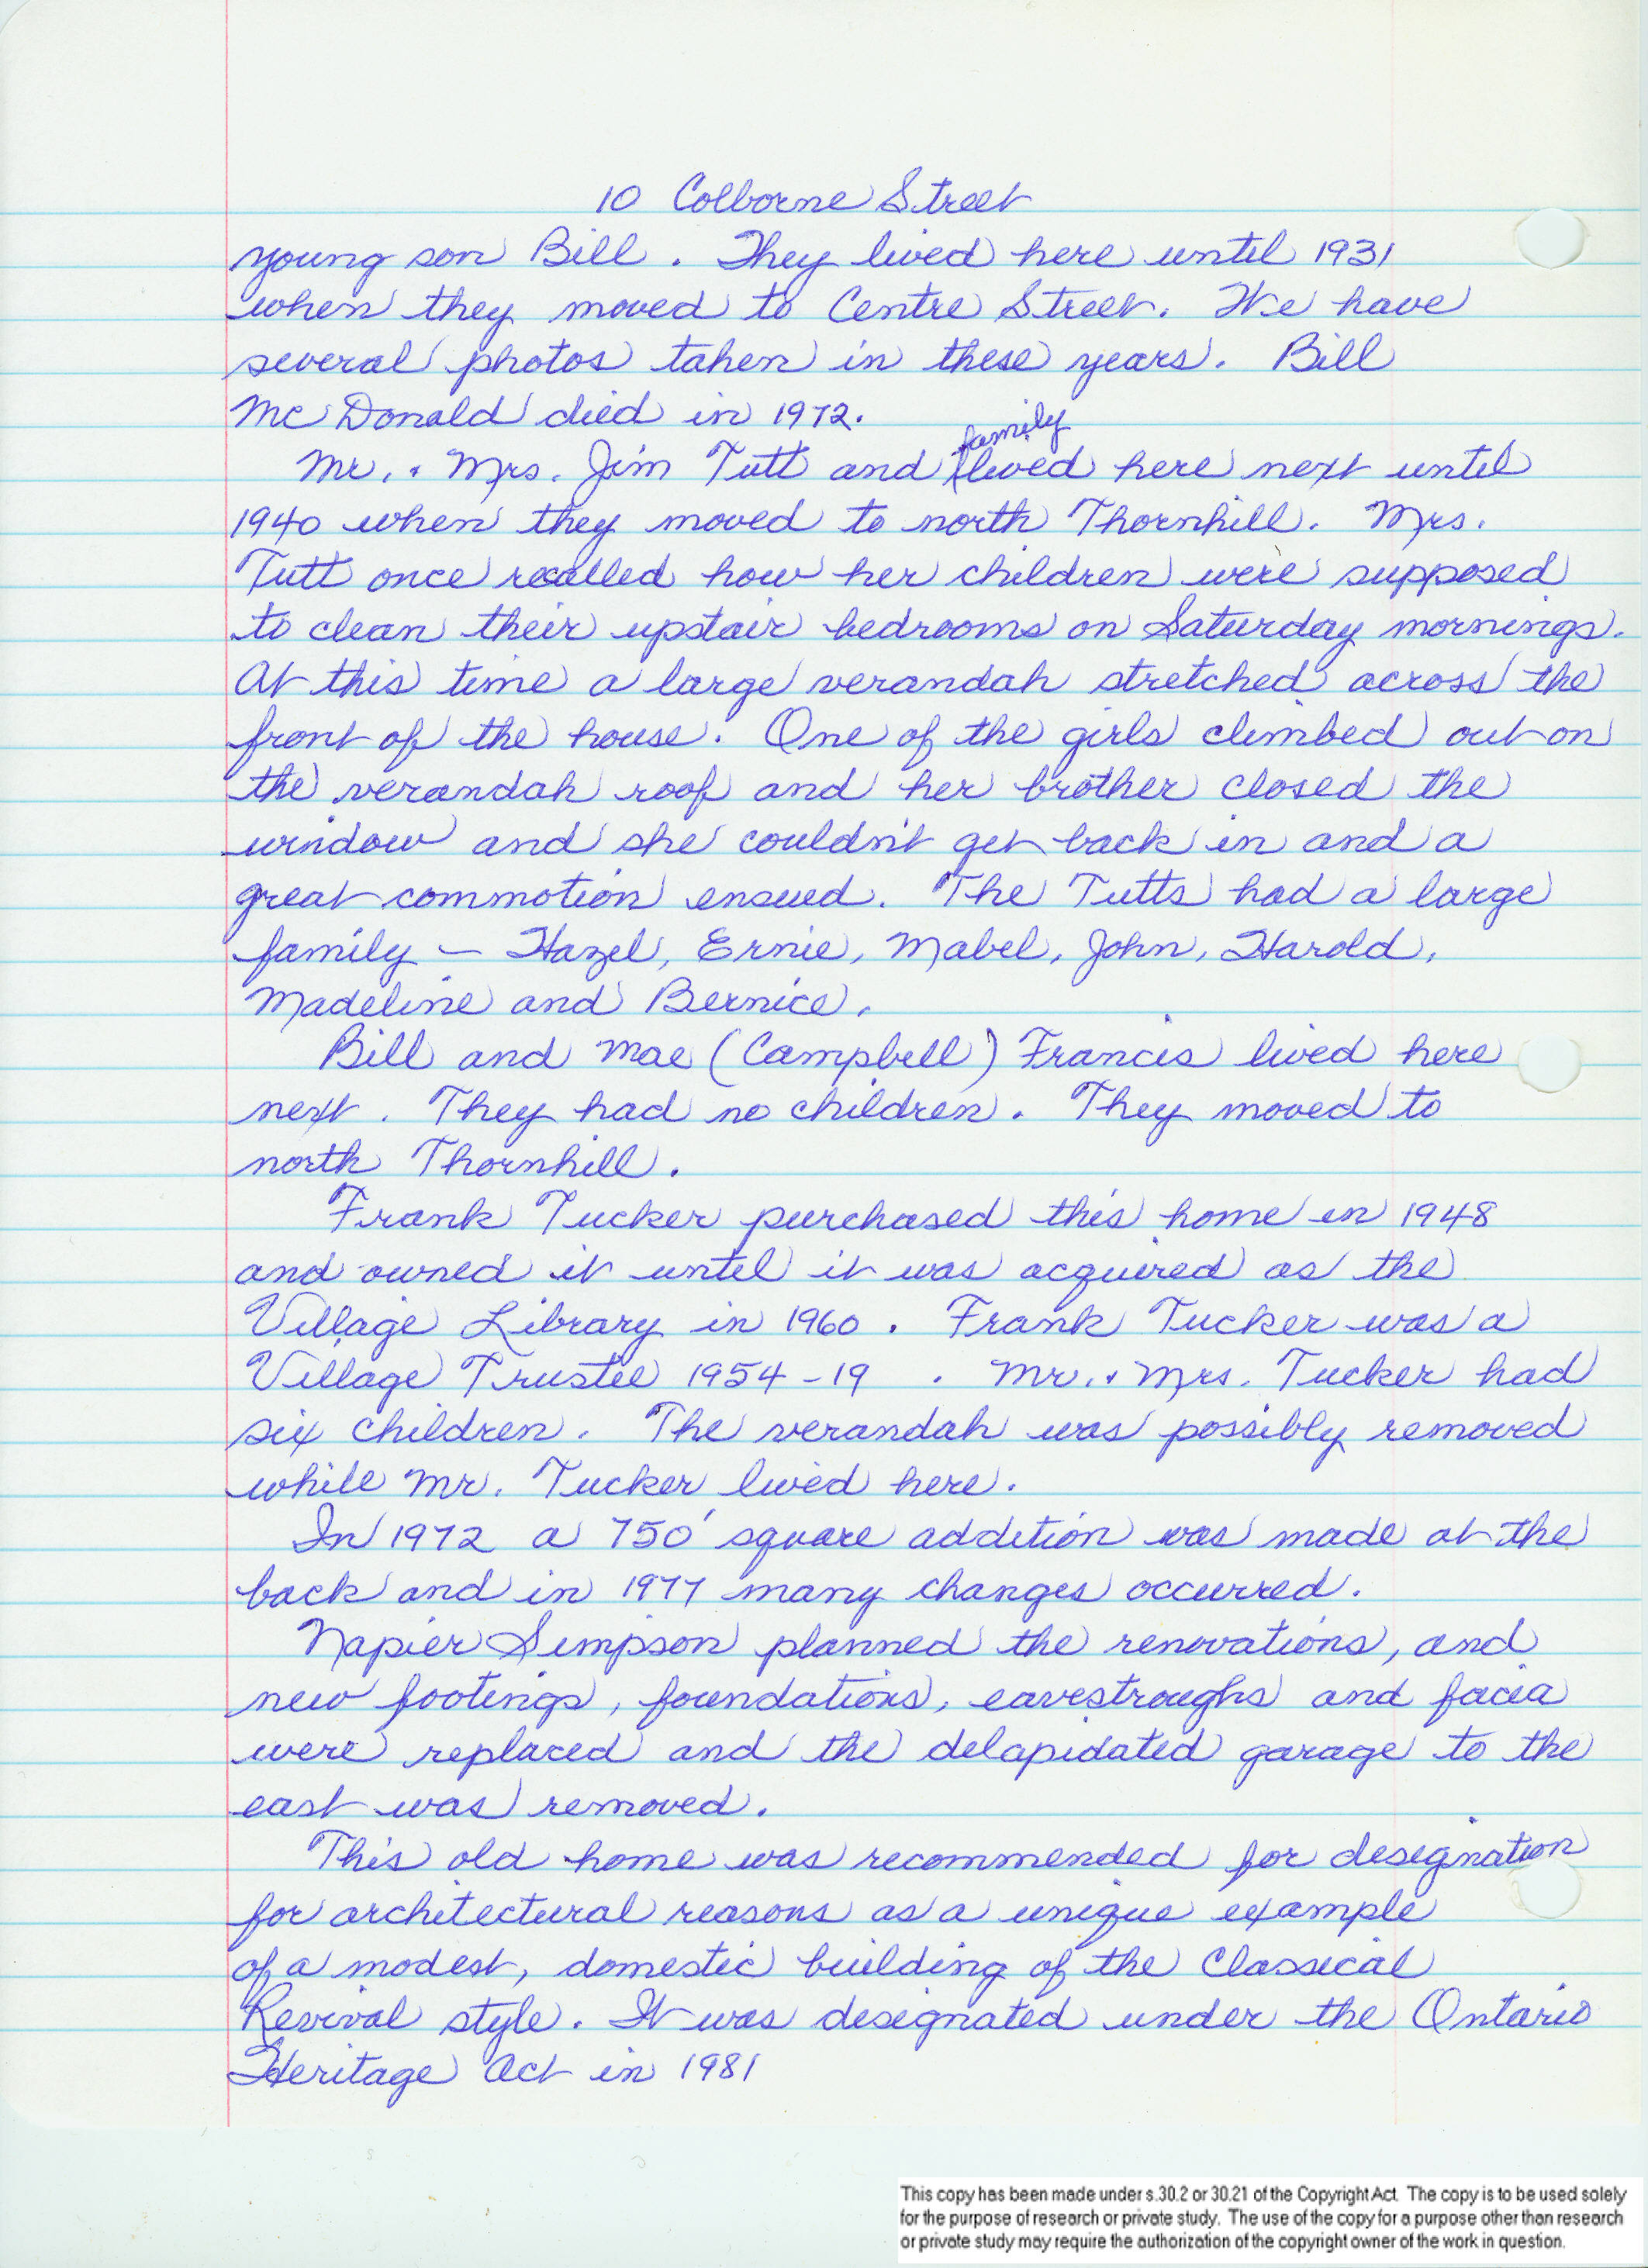 10 Colborne Street
young son Bill. They lived here until 1931
when they moved to Centre Street. We have
several photos taken in these years. Bill
McDonald died in 1972.
family
Mr. & Mrs. Jim Tutt and lived here next until
1940 when they moved to north Thornhill. Mrs.
Tutt once recalled how her children were supposed
to clean their upstair bedrooms on Saturday mornings.
At this time a large verandah stretched across the
front of the house. One of the girls climbed out on
the verandah roof and her brother closed the
window and she couldn't get back in and a
great commotion ensued. The Tutts had a large
family – Hazel, Ernie, Mabel, John, Harold,
Madeline and Bernice.
Bill and Mae (Campbell) Francis lived here
next. They had no children. They moved to
north Thornhill.
Frank Tucker purchased this home in 1948
and owned it until it was acquired as the
Village Library in 1960. Frank Tucker was a
Village Trustee 1954-19 . Mr. & Mrs. Tucker had
six children. The verandah was possibly removed
while Mr. Tucker lived here.
In 1972 a 750' square addition was made at the
back and in 1977 many changes occurred.
Napier Simpson planned the renovations, and
new footings, foundations, eavestroughs and facia
were replaced and the delapidated garage to the
east was removed.
This old home was recommended for designation
for architectural reasons as a unique example
of a modest, domestic building of the Classical
Revival style. It was designated under the Ontario
Heritage Act in 1981
This copy has been made under s.30.2 or 30.21 of the Copyright Act. The copy is to be used solely
for the purpose of research or private study. The use of the copy for a purpose other than research
or private study may require the authorization of the copyright owner of the work in question.